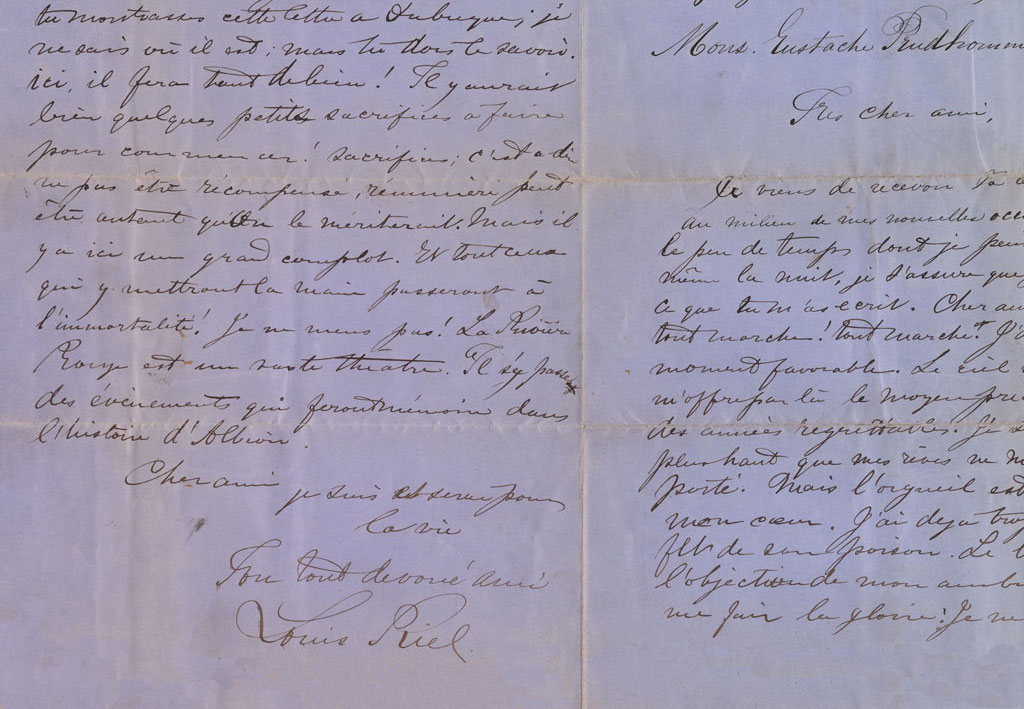 tu montrasses cette lettre a Dubuque; je
ne sais où il est; mais tu dois le savoir.
ici, il fera tant de bien! Il y aurait
bien quelques petits sacrifices a faire
pour commencer! sacrifices; c'est a dire
ne pas être récompensé, peut
être autant qu'on le mériterait. Mais il
y a ici un grand complot. Et tout ceux
qui y mettront la main passeront à
l'immortalité! Je ne mens pas! La Rivière
Rouge est un vaste théatre. Il s'y passe
des événements qui feront mémoire dans
l'histoire d'Albion.
Cher ami
je suis et serai pour
la vie
Ton tout devoué ami
Louis Riel.
Mons. Eustache Prudhomm
Tres cher ami,
Je viens de recevoir ta
au milieu de mes nouvelles occ
le peu de temps dont je peu
même la nuit, je t'assure que
ce que tu m'as ecrit. Cher am
tout marche! tout marche! J'
moment favorable. Le ciel
m'offre par là le moyen pre
des années regrettables. Je s
plus haut que mes rêves ne m
porté. Mais l'orgueil est
mon cœur. J'ai deja tro
de son poison. Le
l'objection de mon amb
me fair la gloire! Je ne